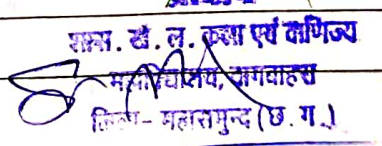 शास. खे. ल. कला एवं वाणिज्य
महाविद्यालय, बागबाहरा
जिला - महासमुन्द (छ. ग.)